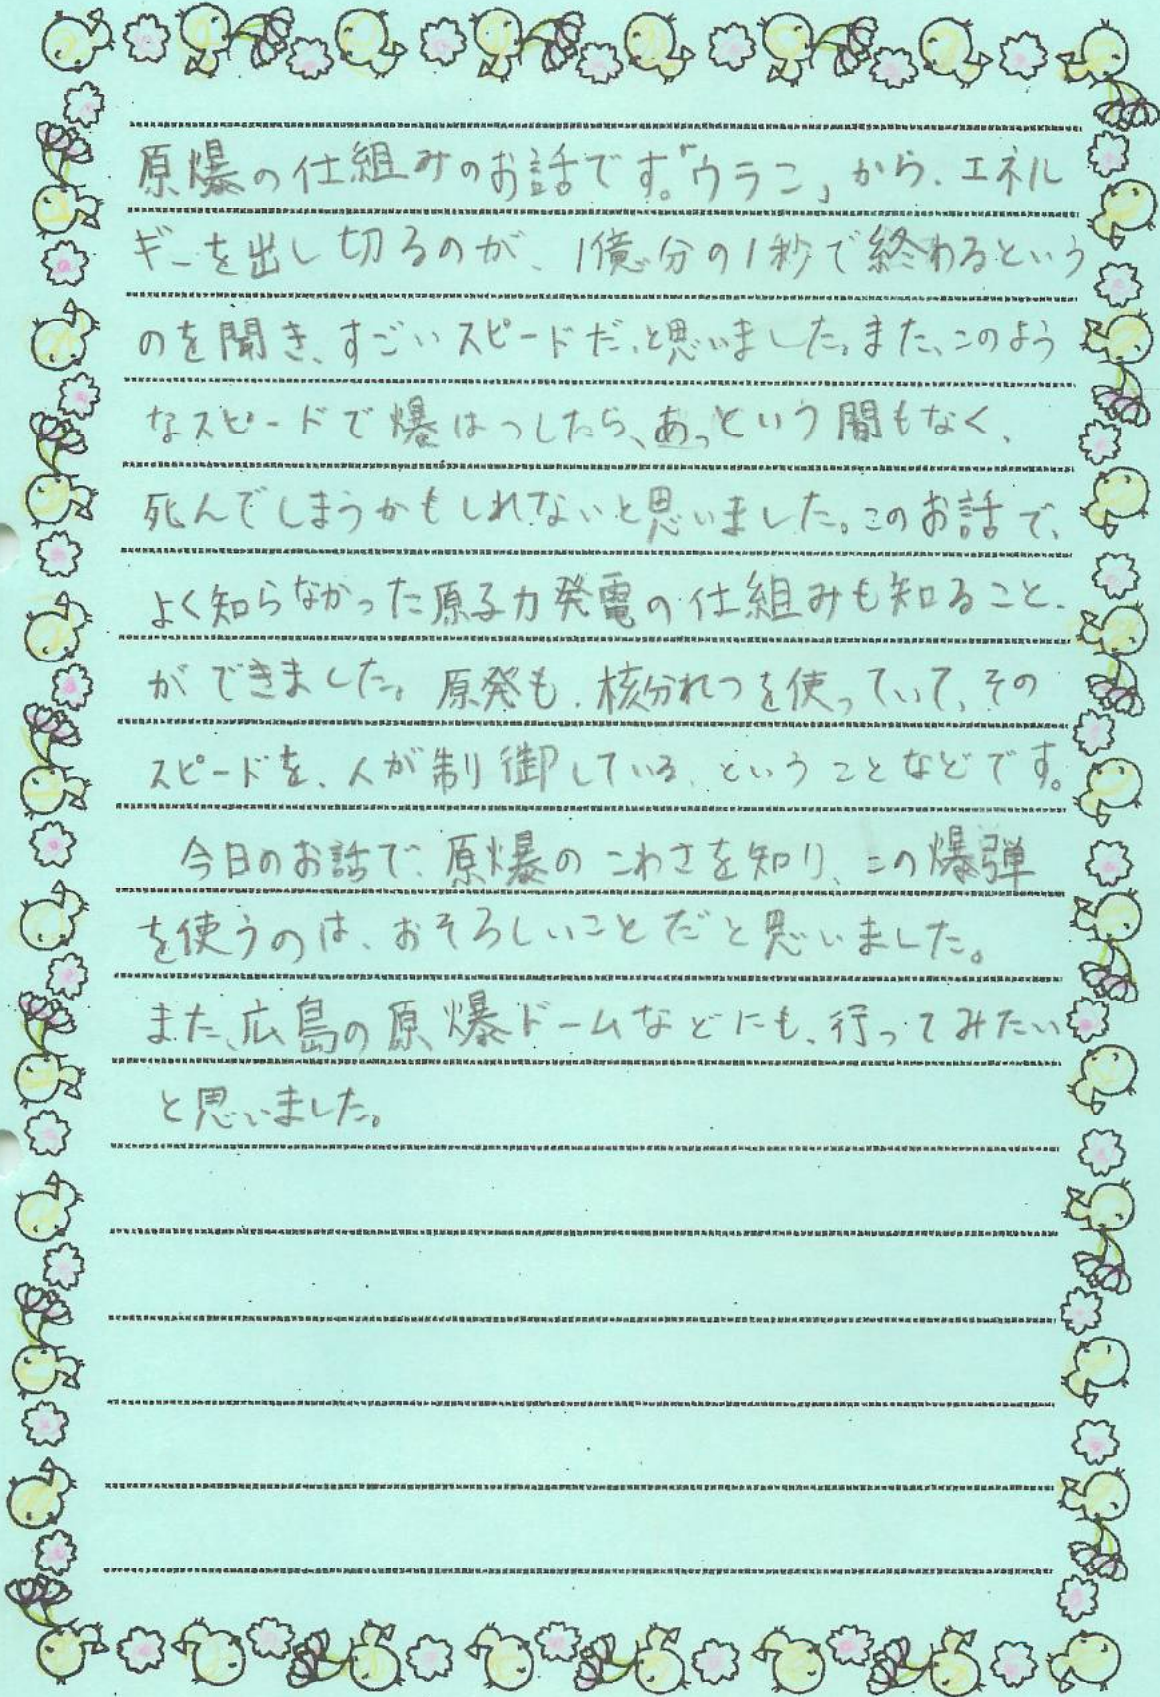 原爆の仕組みのお話です。「ウラン」から、エネル
ギーを出し切るのが、1億分の1秒で終わるという
のを聞き、すごいスピードだと思いました。また、このよう
なスピードで爆はつしたら、あっという間もなく、
死んでしまうかもしれないと思いました。このお話で、
よく知らなかった原子力発電の仕組みも知ること
ができました。原発も、核分れつを使っていて、その
スピードを、人が制御している、ということなどです。
今日のお話で、原爆のこわさを知り、この爆弾
を使うのは、おそろしいことだと思いました。
また、広島の原爆ドームなどにも、行ってみたい
と思いました。